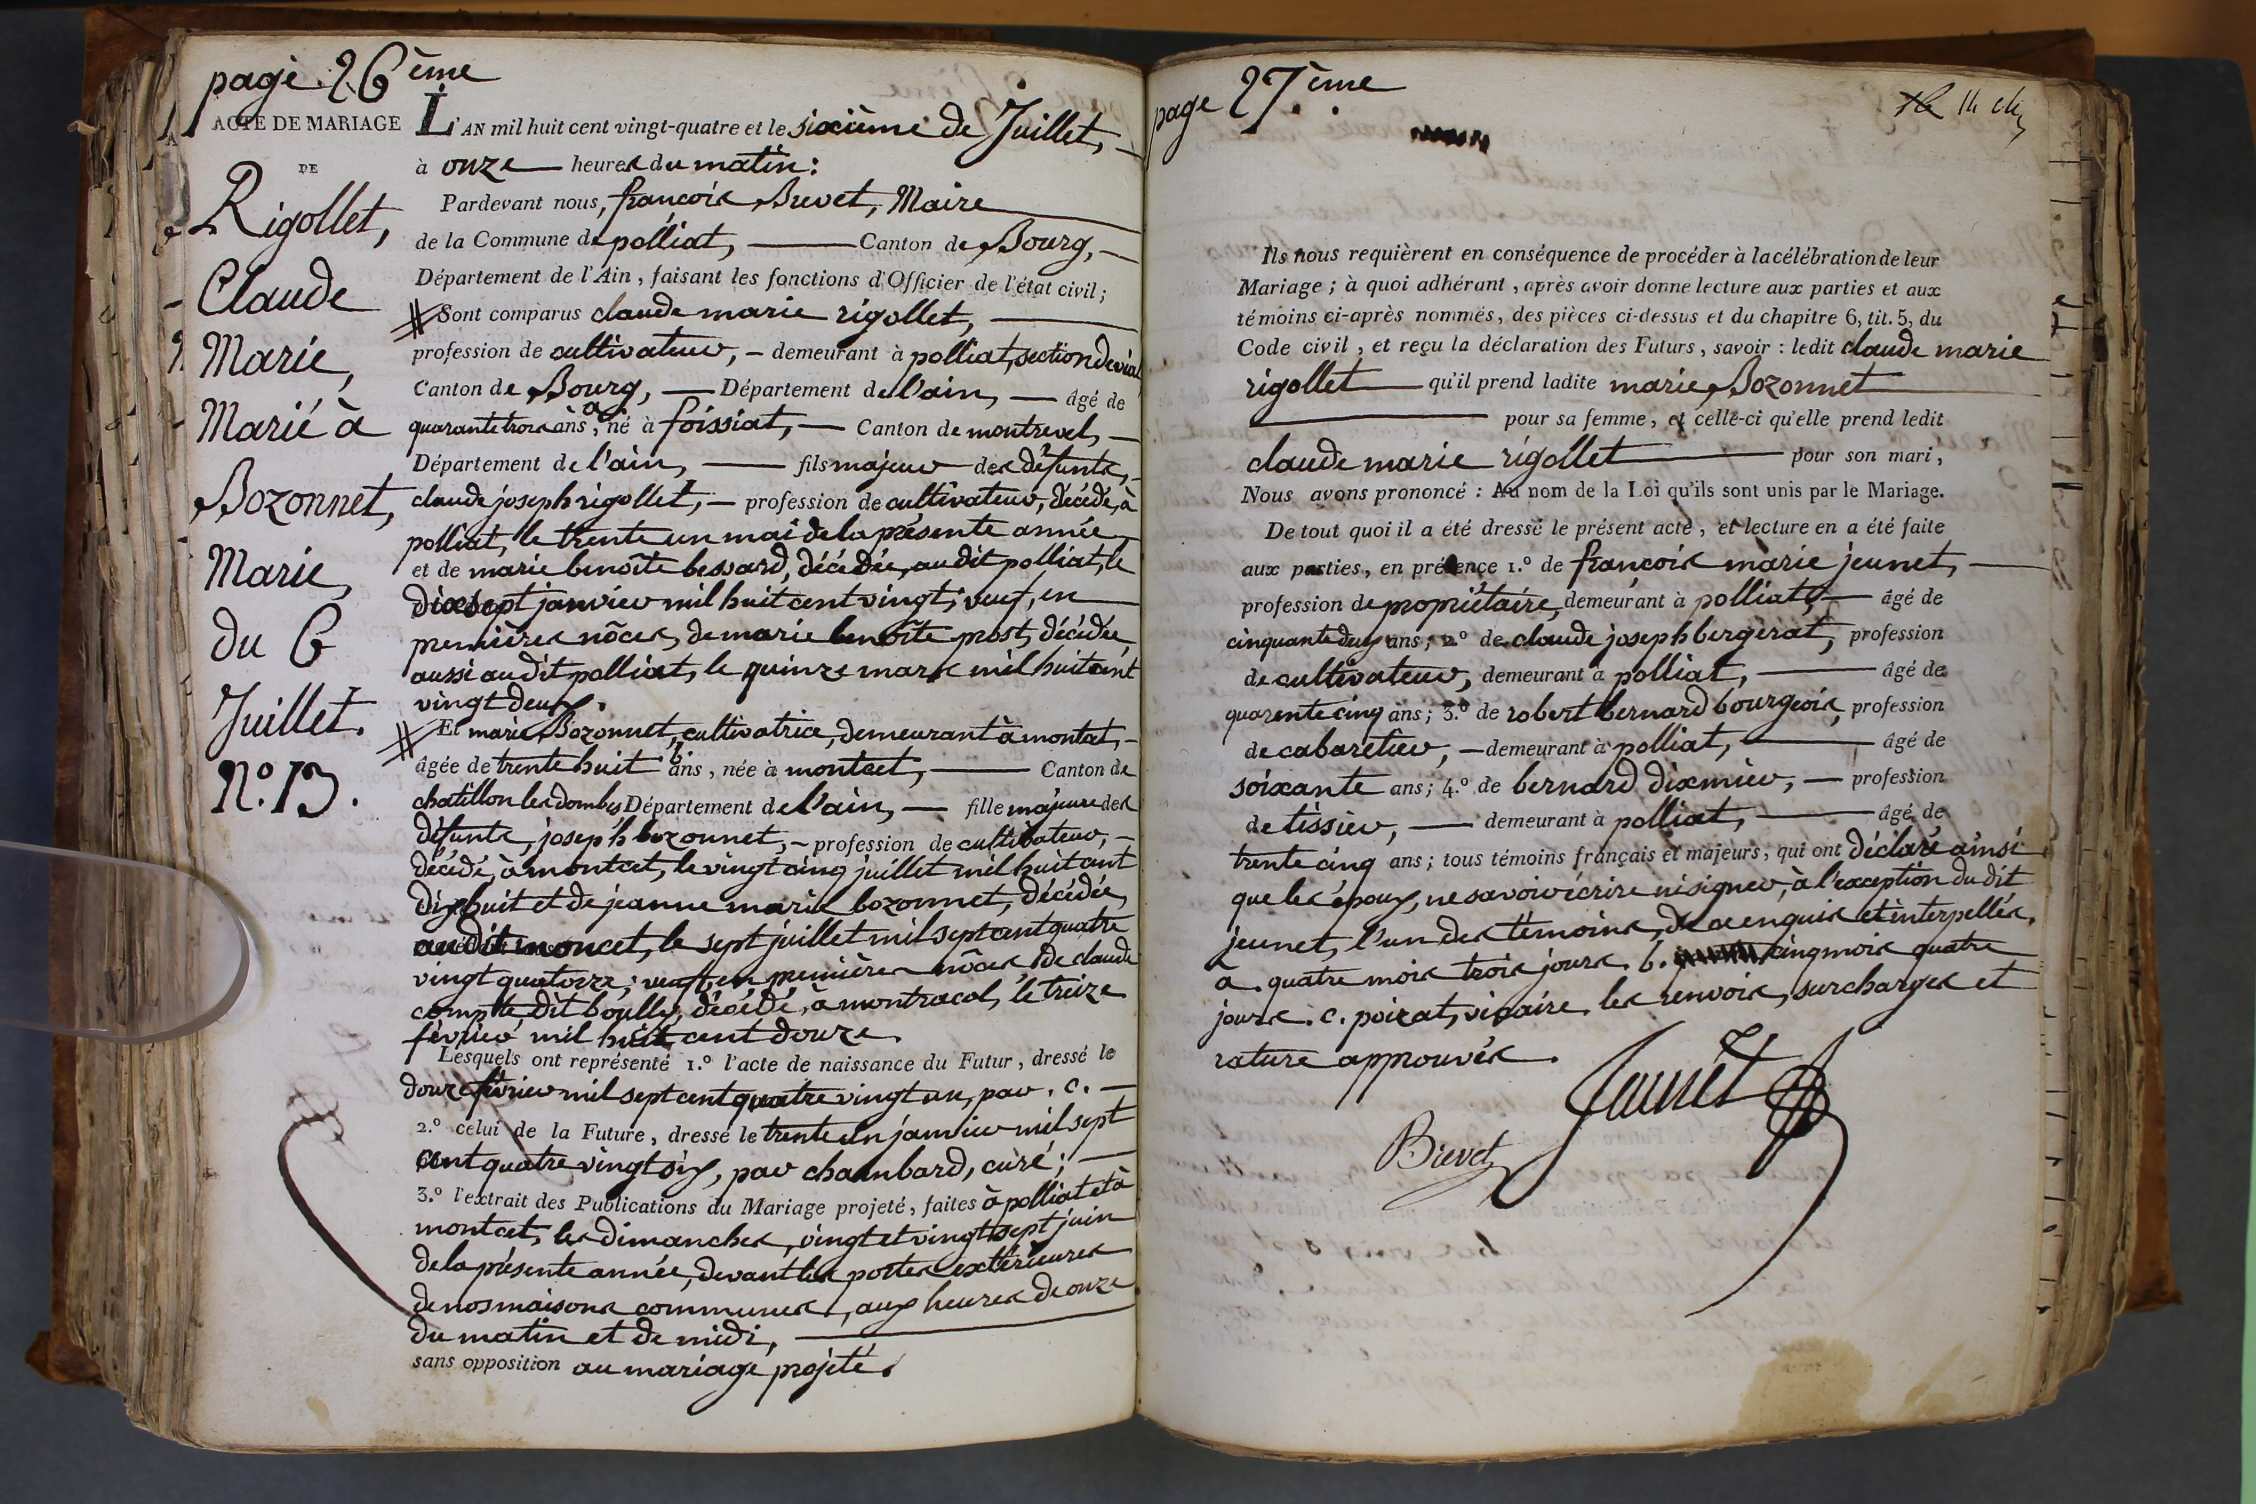 page 26ème
ACTE DE MARIAGE
DE
Rigollet,
Claude
Marie,
Marié à
Bozonnet,
Marie,
du 6
Juillet.
N.º 13.
L'AN mil huit cent vingt-quatre et le sixième de Juillet,
à onze heures du matin:
Pardevant nous, françois Brevet, Maire
de la Commune de polliat, Canton de Bourg,
Département de l'Ain, faisant les fonctions d'Officier de l'état civil;
Sont comparus claude marie rigollet,
profession de cultivateur, demeurant à polliat, section de vial
Canton de Bourg, Département de l'ain, âgé de
quarante trois ans, a né à foissiat, Canton de montrevel,
Département de l'ain, fils majeur des défunts,
claude joseph rigollet, profession de cultivateur, décédé, à
polliat, le trente un mai de la présente année
et de marie benoîte besvard, décédée, audit polliat, le
dixsept janvier mil huit cent vingt; veuf, en
premières nôces, de marie benoîte prost, décédée
aussi audit polliat, le quinze mars mil huit cent
vingt deux.
Et marie Bozonnet, cultivatrice, demeurant à montcet,
âgée de trente huit b ans, née à montcet, Canton de
chatillon les dombes Département de l'ain, fille majeure des
défunts, joseph bozonnet, profession de cultivateur,
décédé, à montcet, le vingt cinq juillet mil huit cent
dix huit et de jeanne marie bozonnet, décédée,
audit moncet, le sept juillet mil sept cent quatre
vingt quatorze; veuve, en premières nôces, de claude
compte, dit boully, décédé, à montracol, le treize
février mil huit cent douze.
Lesquels ont représenté 1.º l'acte de naissance du Futur, dressé le
douze février mil sept cent quatre vingt un, par. c.
2.º celui de la Future, dressé le trente un janvier mil sept
cent quatre vingt six, par chambard, curé;
3.º l'extrait des Publications du Mariage projeté, faites à polliat et à
montcet, les dimanches, vingt et vingt sept juin
de la présente année, devant les portes extérieures
de nos maisons communes, aux heures de onze
du matin et de midi,
sans opposition au mariage projeté.
page 27ème
Ils nous requièrent en conséquence de procéder à la célébration de leur
Mariage; à quoi adhérant, après avoir donne lecture aux parties et aux
témoins ci-après nommés, des pièces ci-dessus et du chapitre 6, tit. 5, du
Code civil, et reçu la déclaration des Futurs, savoir : ledit claude marie
rigollet qu'il prend ladite marie Bozonnet
pour sa femme, et celle-ci qu'elle prend ledit
claude marie rigollet pour son mari,
Nous avons prononcé : Au nom de la Loi qu'ils sont unis par le Mariage.
De tout quoi il a été dressé le présent acte, et lecture en a été faite
aux parties, en présence 1.º de françois marie jeunet,
profession de propriétaire, demeurant à polliat, âgé de
cinquante deux ans; 2º de claude joseph bergerat, profession
de cultivateur, demeurant à polliat, âgé de
quarente cinq ans; 3.º de robert bernard bourgeois, profession
de cabaretier, demeurant à polliat, âgé de
soixante ans; 4.º de bernard dixmier, profession
de tissier, demeurant à polliat, âgé de
trente cinq ans; tous témoins français et majeurs, qui ont déclaré ainsi
que les époux, ne savoir écrire ni signer, à l'exception du dit
jeunet, l'un des témoins, de ce enquis et interpellés.
a. quatre mois trois jours. b. cinq mois quatre
jours. c. poizat, vicaire, les renvois, surcharges et
rature approuvés.
Jeunet
Brevet